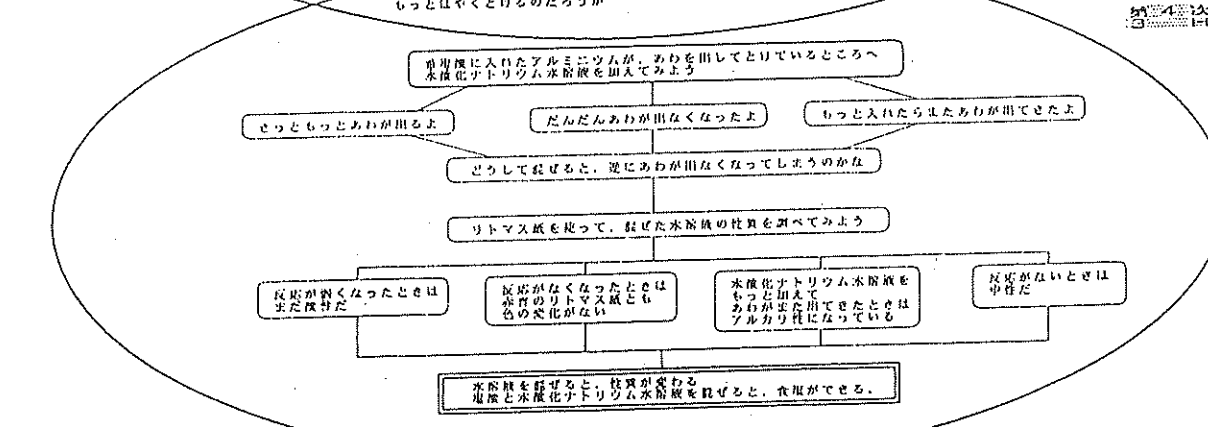 もっとはやくとけるのだろうか
第4次
塩酸に入れたアルミニウムが，あわを出してとけているところへ
水酸化ナトリウム水溶液を加えてみよう
きっともっとあわが出るよ
だんだんあわが出なくなったよ
もっと入れたらまたあわが出てきたよ
どうして混ぜると，逆にあわが出なくなってしまうのかな
リトマス紙を使って，混ぜた水溶液の性質を調べてみよう
反応が弱くなったときは
まだ酸性だ
反応がなくなったときは
赤青のリトマス紙とも
色の変化がない
水酸化ナトリウム水溶液を
もっと加えて
あわがまた出てきたときは
アルカリ性になっている
反応がないときは
中性だ
水溶液を混ぜると，性質が変わる
塩酸と水酸化ナトリウム水溶液を混ぜると，食塩ができる．